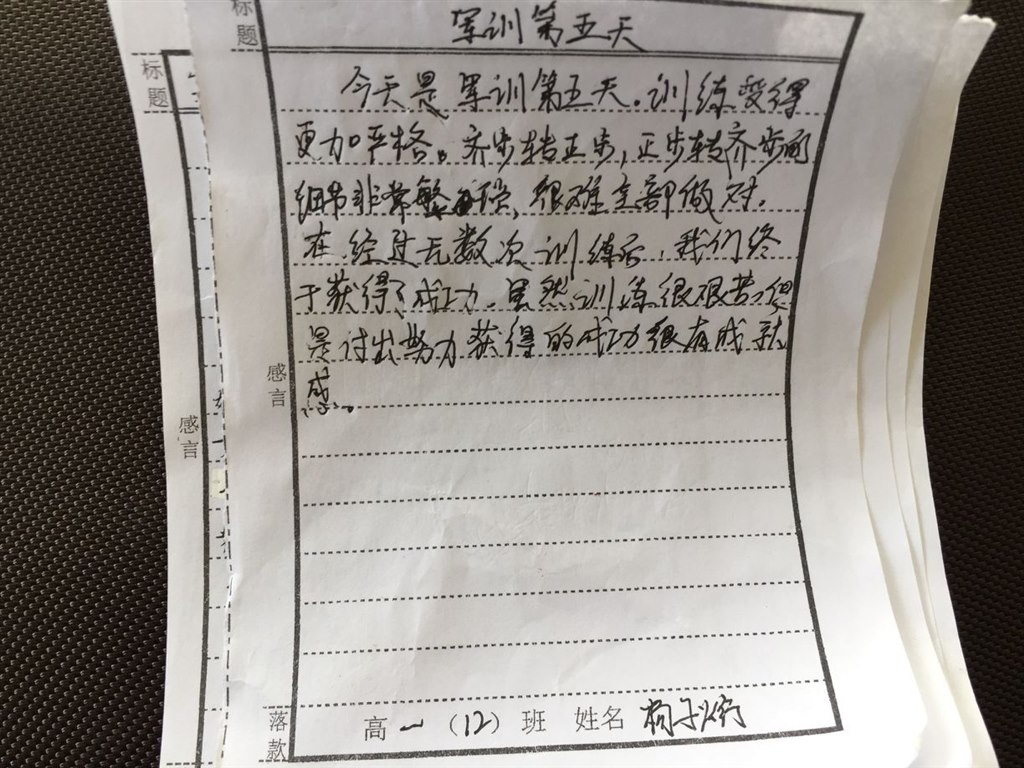 标题
军训第五天
标题
今天是军训第五天。训练变得
更加严格。齐步转正步,正步转齐步的
细节非常繁琐,很难全部做对。
在经过无数次训练后,我们终
于获得了成功。虽然训练很艰苦,但
是付出努力获得的成功很有成就
感。
感言
感言
落款
高一(12)班 姓名